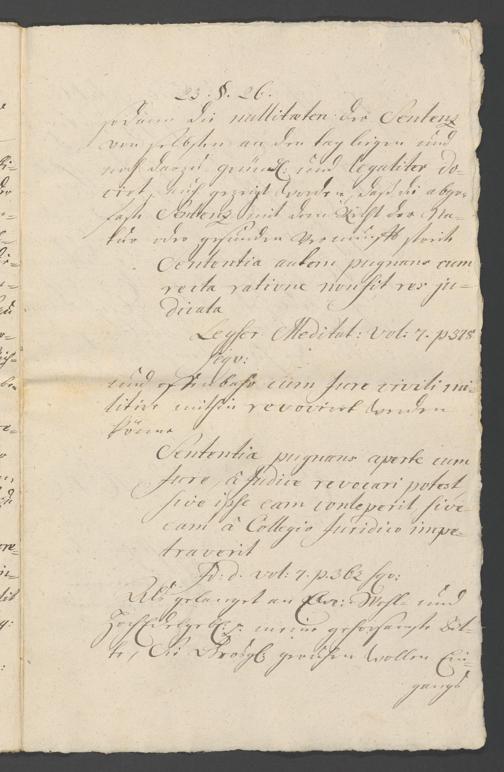 23. §. 26.
sodann die nullitaeten der Sentenz
von selbsten an den tag liegen und
noch darzu gründl. und legaliter do=
cirt, auch gezeigt worden, daß die abge=
faste Sentenz mit dem Recht der Na=
tur oder gesunden Vernunfft streite
Sententia autem pugnans cum
recta ratione non fit res ju=
dicata
Leyser Meditat: vol: 7. p. 378
seqv:
und offenbahr cum Jure civili mi=
litire, mithin revocirt werden
könne
Sententia pugnans aperte cum
Jure, à Judice revocari potest
sive ipse eam conceperit, sive
eam à Collegio Juridico impe=
traverit
Id. d. vol: 7. p. 362 sqv:
Als gelanget an Ewr: Wohl= und
meine gehorsamste Bit=
te, Sie geruhen wollen Ein=
gangs